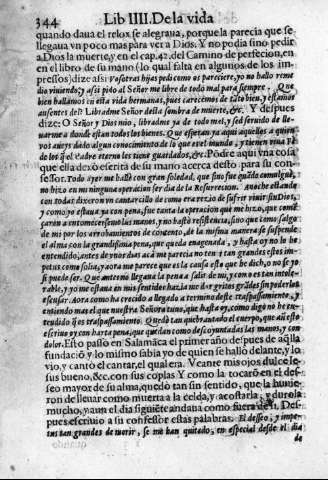 344 Lib IIII. De la vida
quando daua el relox se alegraua, porque la parecia que se
llegaua vn poco mas para ver a Dios. Y no podia sino pedir
a Dios la muerte, y en el cap. 42. del Camino de perfecion, en
en el libro de su mano (lo qual falta en algunos de los im-
pressos) dize assi: vosotras hijas pedi como os pareciere, yo no hallo reme
dio viuiendo; y assi pido al Señor me libre de todo mal para siempre. Que
bien hallamos en esta vida hermanas, pues carecemos de tāto bien, y estamos
ausentes del? Librad me Señor desta sombra de muerte, &c. Y despues
dize: O Señor y Dios mio, librad me ya de todo mal, y sed seruido de lle-
uarme a donde estan todos los bienes. Que esperan ya aqui aquellos a quien
vos aueys dado algun conocimiento de lo que es el mundo, y tienen viua fè
de los q̃ el Padre eterno les tiene guardados, &c. Porè aqui vna cosa
que ella dexò escrita de su mano acerca desto para su con-
fessor. Todo ayer me hallè con gran soledad, que sino fue quādo comulguè,
no hizo en mi ninguna operacion ser dia de la Resurrecion. Anoche estando
con todas dixeron vn cantarcillo de como era rezio de sufrir viuir sin Dios,
y como yo estaua ya con pena, fue tanta la operacion que me hizo, que come
çaron a entomecerseme las manos, y no bastò resistencia, sino que como salgo
de mi por los arrobamientos de contento, de la misma manera se suspende
el alma con la grandissima pena, que queda enagenada, y hasta oy no lo he
entendido, antes de vnos dias acà me parecia no tener tan grandes estos im
petus como solia, y aora me parece que es la causa esto que he dicho, no se yo
si puede ser. Que antes no llegaua la pena a salir de mi, y como es tan intole-
rable, y yo me estaua en mis sentidos hazia me dar gritos grādes sin poderlos
escusar. Aora como ha crecido a llegado a termino deste traspassamiento, y
entiendo mas el que nuestra Señora tuuo, que hasta oy, como digo no he en-
tendido q̃ es traspassamiento. Quedò tan quebrantado el cuerpo, que aũ esto
escriuo oy con harta pena, que quedan como descoyuntadas las manos, y con
dolor. Esto passò en Salamāca el primer año despues de aq̃lla
fundaciō y lo mismo sabia yo de quien se hallo delante, y lo
vio, y canto el cantar, el qual era. Veante mis ojos dulce Ie-
sus bueno, &c. con sus coplas. Y como la tocarō en el des-
seo mayor de su alma, quedò tan sin sentido, que la huuie-
ron de lleuar como muerta a la celda, y acostarla; y durola
mucho, y aun el dia siguiēte andaua como fuera de si. Des-
pues escriuio a su confessor estas palabras. El desseo, y impe-
tus tan grandes de morir, se me han quitado, en especial desde el dia
de